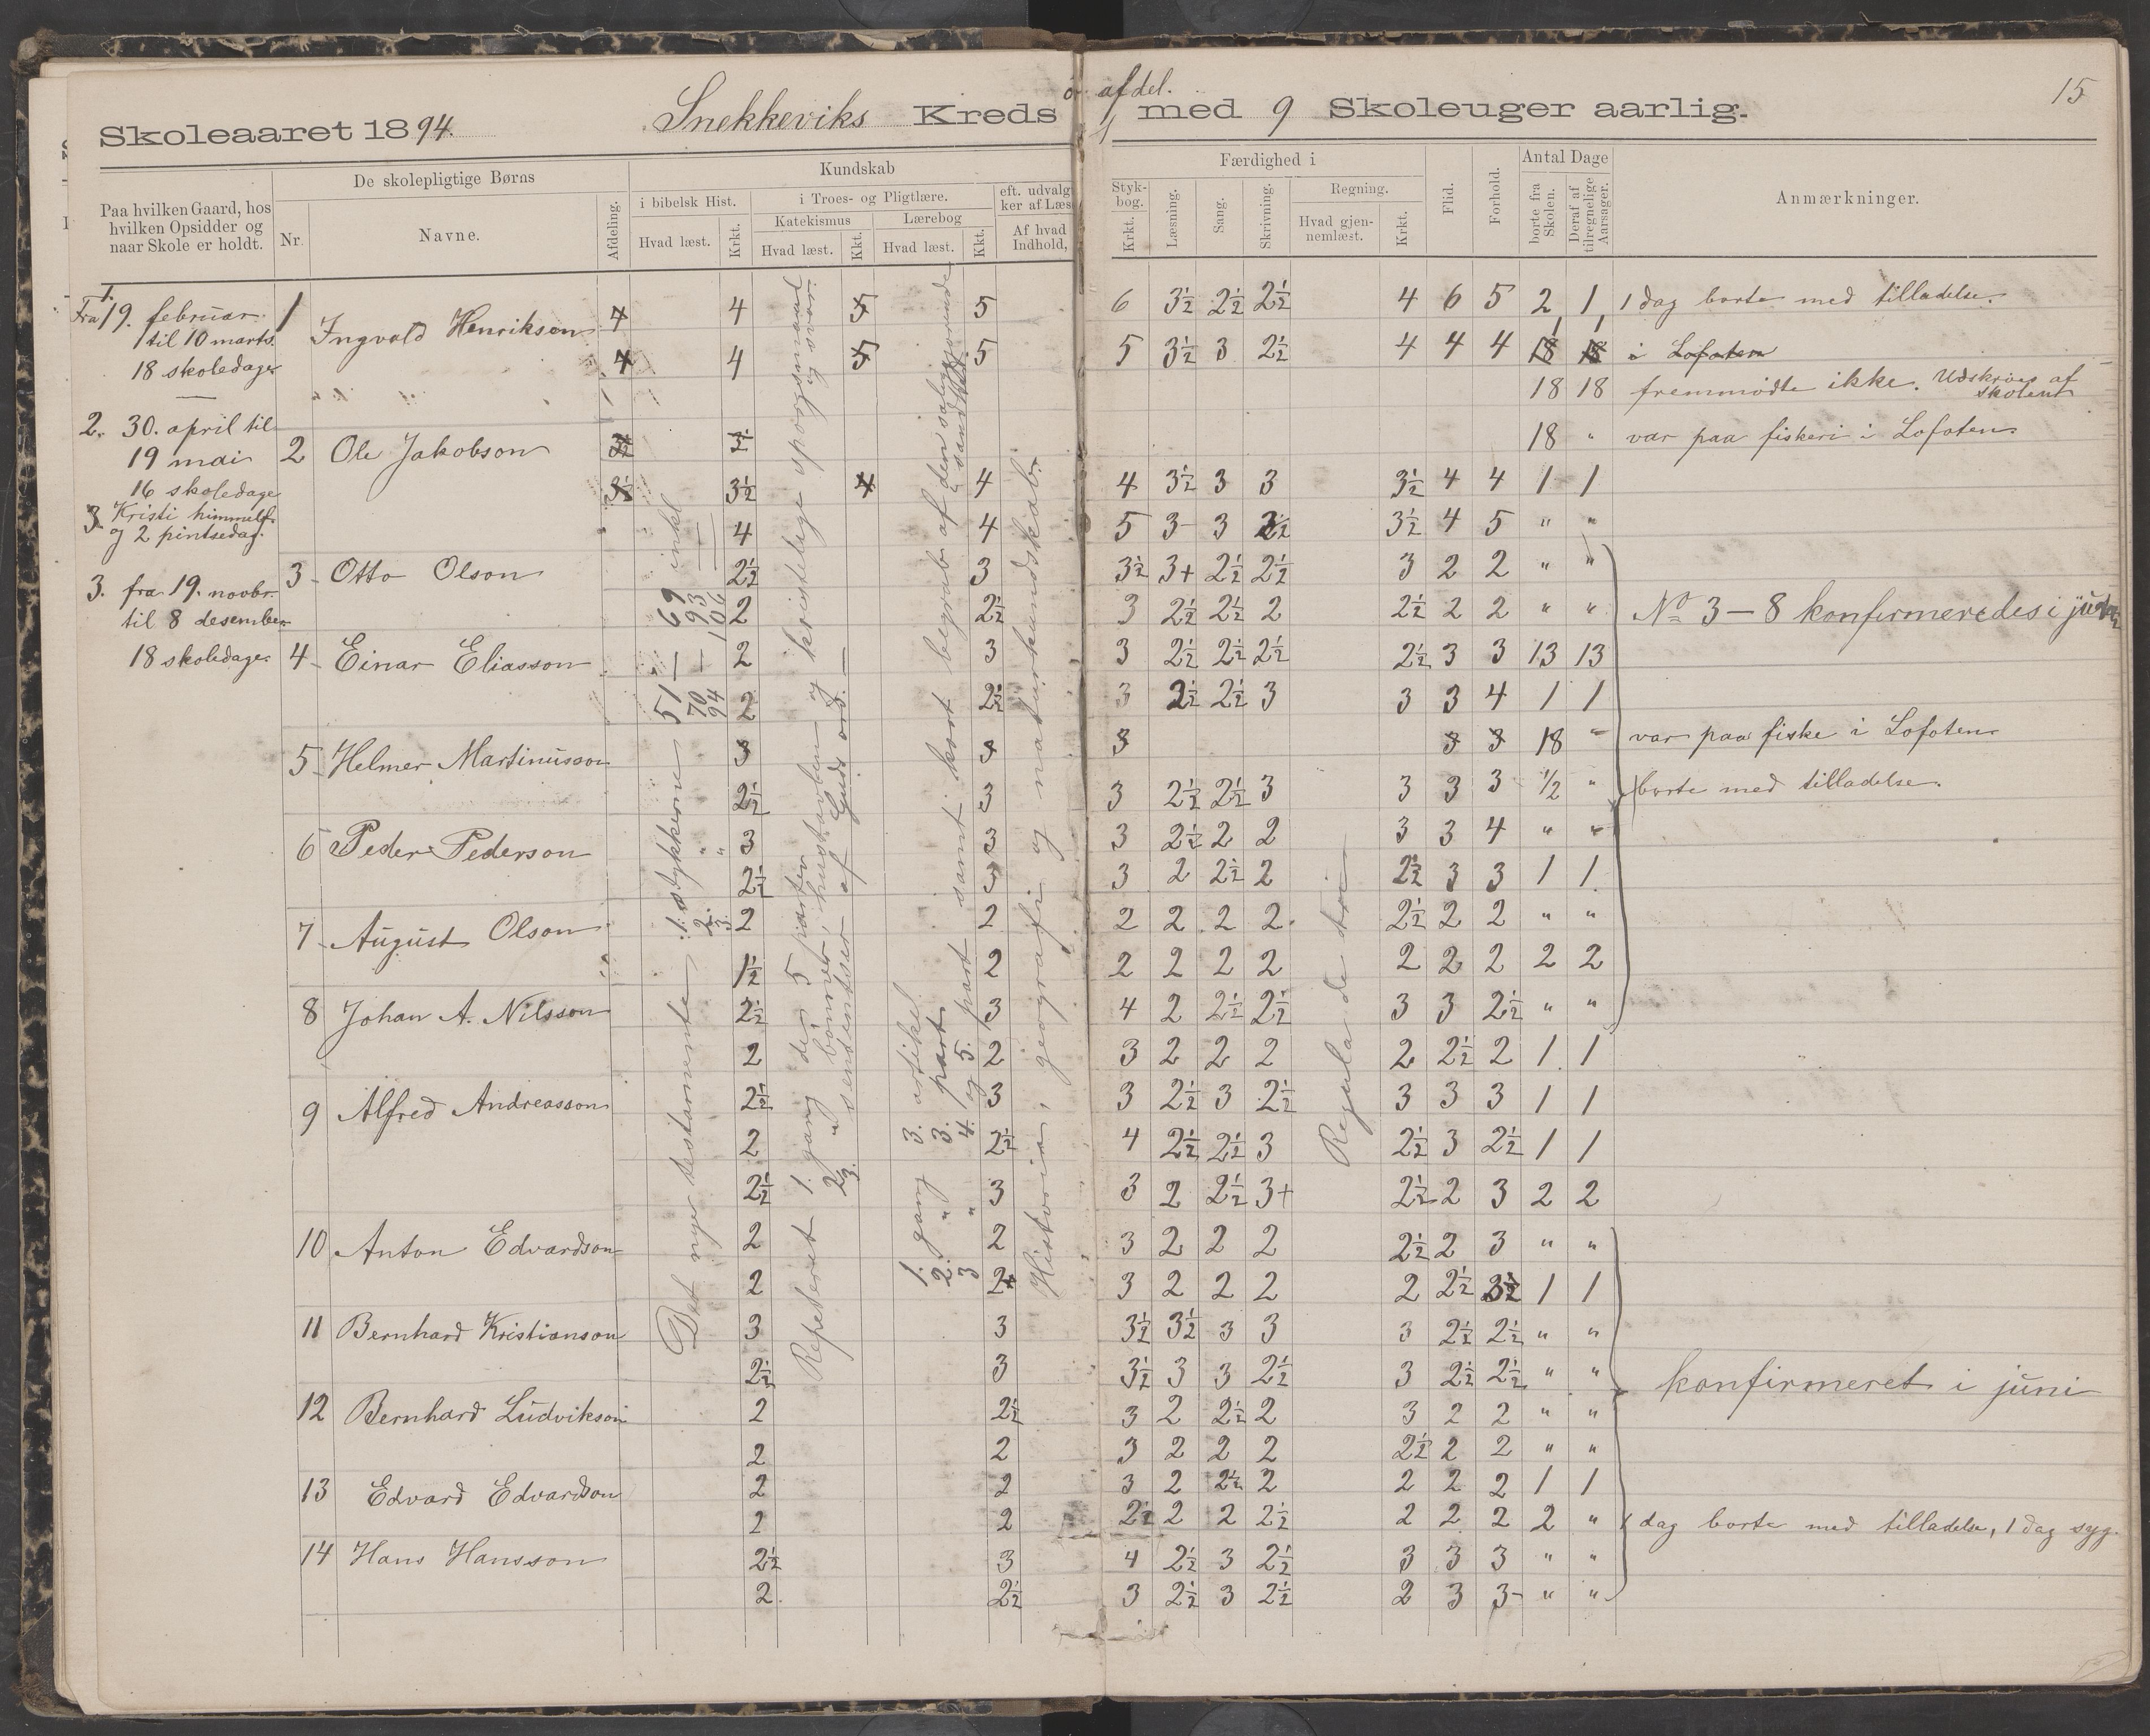 ö. afdel.
15
Skoleaaret 1894. Snekkeviks Kreds med 9 Skoleuger aarlig.
Paa hvilken Gaard, hos
hvilken Opsidder og
naar Skole er holdt.
De skolepligtige Børns
Nr. Navne. Afdeling.
Kundskab
i bibelsk Hist.
Hvad læst. Krkt.
i Troes- og Pligtlære.
Katekismus
Hvad læst. Kkt.
Lærebog
Hvad læst. Kkt.
eft. udvalg
ker af Læs
Af hvad
Indhold,
Færdighed i
Styk-
bog.
Krkt. Læsning. Sang. Skrivning.
Regning.
Hvad gjen-
nemlæst.
Krkt.
Flid. Forhold.
Antal Dage
borte fra
Skolen.
Deraf af
tilregnelige
Aarsager.
Anmærkninger.
1.
Fra 19. februar
til 10 marts.
18 skoledage
2. 30. april til
19 mai
16 skoledage
Kristi himmelf.
og 2 pintsedag.
3. fra 19. novbr.
til 8 desember
18 skoledage
1 Ingvald Henrikson 4 4 5 5 6 3½ 2½ 2½ 4 6 5 2 1 1 dag borte med tilladelse.
4 4 5 5 5 3½ 3 2½ 4 4 4 18 18 i Lofoten
18 18 fremmødte ikke. Udskrives af
skolen
2 Ole Jakobson 18 " var paa fiskeri i Lofoten
3½ 4 4 4 3½ 3 3 3½ 4 4 1 1
4 4 5 3 3 3½ 4 5 " "
3 Otto Olson 2½ 3 3½ 3+ 2½ 2½ 3 2 2 " "
2 2½ 3 2½ 2½ 2 2½ 2 2 " " No 3-8 konfirmeredes i
4 Einar Eliasson 2 3 3 2½ 2½ 2½ 2½ 3 3 13 13
2 2½ 3 2½ 2½ 3 3 3 4 1 1
5 Helmer Martinusson 3 3 3 3 3 18 " var paa fiske i Lofoten
2½ 3 3 2½ 2½ 3 3 3 3 ½ " borte med tilladelse.
6 Peder Pederson 3 3 3 2½ 2 2 3 3 4 " "
2½ 3 3 2 2½ 2 2½ 3 3 1 1
7 August Olson 2 2 2 2 2 2 2½ 2 2 " "
1½ 2 2 2 2 2 2 2 2 2 2
8 Johan A. Nilsson 2½ 3 4 2 2½ 2½ 3 3 2½ " "
2 2 3 2 2 2 2 2½ 2 1 1
9 Alfred Andreasson 2½ 3 3 2½ 3 2½ 3 3 3 1 1
2 2½ 4 2½ 2½ 3 2½ 3 2½ 1 1
2½ 3 3 2 2½ 3+ 2½ 2 3 2 2
10 Anton Edvardson 2 2 3 2 2 2 2½ 2 3 " "
2 2+ 3 2 2 2 2 2½ 3½ 1 1
11 Bernhard Kristianson 3 3 3½ 3½ 3 3 3 2½ 2½ " "
2½ 3 3½ 3 3 2½ 3 2½ 2½ " " konfirmeret i juni
12 Bernhard Ludvikson 2 2½ 3 2 2½ 2 3 2 2 " "
2 2 3 2 2 2 2½ 2 2 " "
13 Edvard Edvardson 2 2 3 2 2½ 2 2 2 2 1 1
2 2 2½ 2 2 2½ 2 2 2 2 " 1 dag borte med tilladelse, 1 dag syg.
14 Hans Hansson 2½ 3 4 2½ 3 2½ 3 3 3 " "
2 2½ 3 2½ 3 2½ 2 3 3- " "
Det nye testamente 1. stykkerne 51 — 69 inkl.
2. " 70 — 93 —
3. " 94 — 106 —
Repeteret 1. gang de 5 parter og kristelige spørgsmaal
2. " bønner, hustavlen og svar.
3. sentenser af Guds ord. —
1. gang 3. artikel
2. " 3. part
3 " 4. og 5. part samt kort begreb af den saliggjørende
sandhed
Historie, geografi og naturkundskab.
Regula de tri